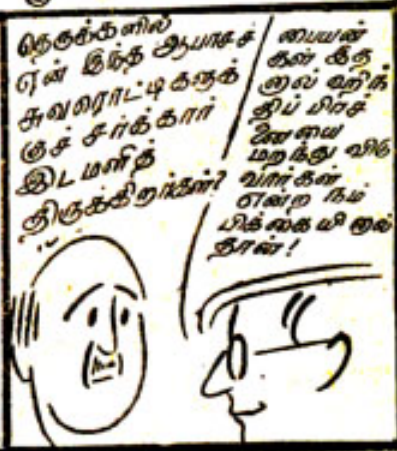 தெருக்களில்
ஏன் இந்த ஆபாசச்
சுவரொட்டிகளுக்
குச் சர்க்கார்
இடமளித்
திருக்கிறார்கள்?
பையன்
கள் இத
னால் ஹிந்
திப் பிரச்
னையை
மறந்து விடு
வார்கள்
என்ற நம்
பிக்கையினால்
தான்!